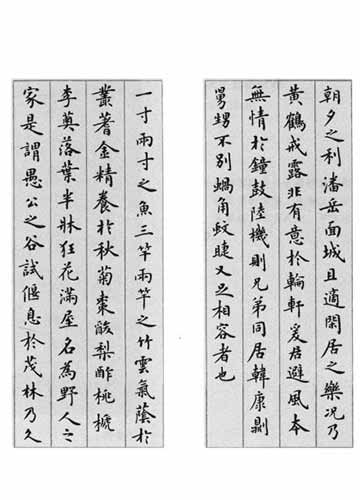 朝夕之利潘岳面城且適閑居之樂况乃
黃鶴戒露非有意於輪軒爰居避風本
無情於鐘鼓陸機則兄弟同居韓康則
舅甥不別蝸角蚊睫又足相容者也
一寸兩寸之魚三竿兩竿之竹雲氣蔭於
叢蓍金精養於秋菊棗酸梨酢桃榹
李薁落葉半牀狂花滿屋名為野人之
家是謂愚公之谷試偃息於茂林乃久